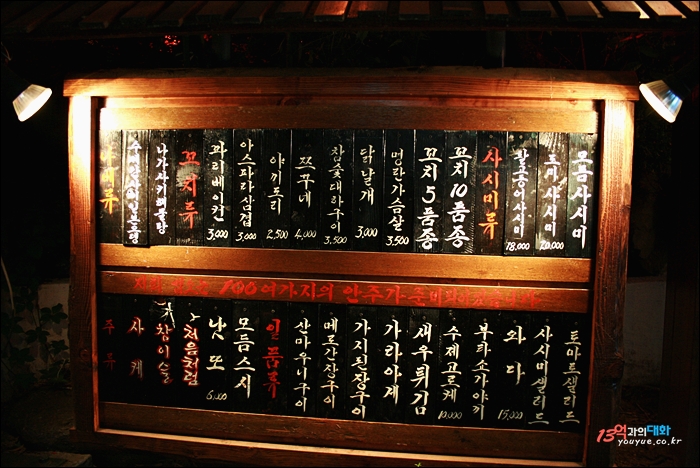 모듬사시미
도미사시미 20,000
활고등어사시미 18,000
사시미류
꼬치 10품종
꼬치 5품종
명란가슴살 3,500
닭날개 3,000
참숯대하구이 3,500
쯔꾸네 4,000
야끼도리 2,500
아스파라삼겹 3,000
파리베이컨 3,000
꼬치류
나가사키해물탕
여가지의 안주가 준비되어있습니다
토마토샐러드
사시미샐러드
와다 15,000
부타쇼가야끼
수제고로케 10,000
새우튀김
가라아게
가지된장구이
메로간장구이
산마우니구이
일품류
모듬스시
낫또 6,000
처음처럼
참이슬
사케
주류
13억과의대화
youyue.co.kr